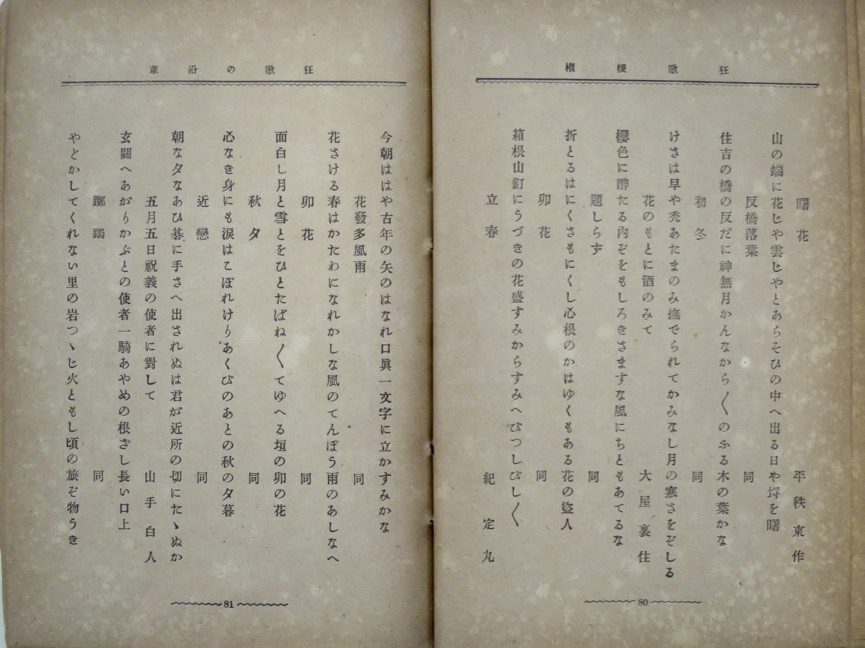 狂歌梗概
曙花　平秩東作
山の端に花じや雲じやとあらそひの中へ出る日や埒を曙
反橋落葉　同
住吉の橋の反だに神無月かんなから〱のふる木の葉かな
初冬　同
けさは早や禿あたまのみ撫でられてかみなし月の寒さをぞしる
花のもとに酒のみて　大屋裏住
櫻色に醉たる内ぞをもしろきさますな風にちともあてるな
題しらず　同
折とるはにくさもにくし心根のかはゆくもある花の盜人
卯花　同
箱根山釘にうづきの花盛すみからすみへびつしびし〱
立春　紀定丸
80
狂歌の沿革
今朝ははや古年の矢のはなれ口眞一文字に立かすみかな
花發多風雨　同
花さける春はかたわになれかしな風のてんぼう雨のあしなへ
卯花　同
面白し月と雪とをひとたばね〱てゆへる垣の卯の花
秋夕　同
心なき身にも涙はこぼれけりあくびのあとの秋の夕暮
近戀　同
朝な夕なあひ碁に手さへ出されぬは君が近所の切にたゝぬか
五月五日祝義の使者に對して　山手白人
玄關へあがりかぶとの使者一騎あやめの根ざし長い口上
躑躅　同
やどかしてくれない里の岩つゝじ火ともし頃の旅ぞ物うき
81